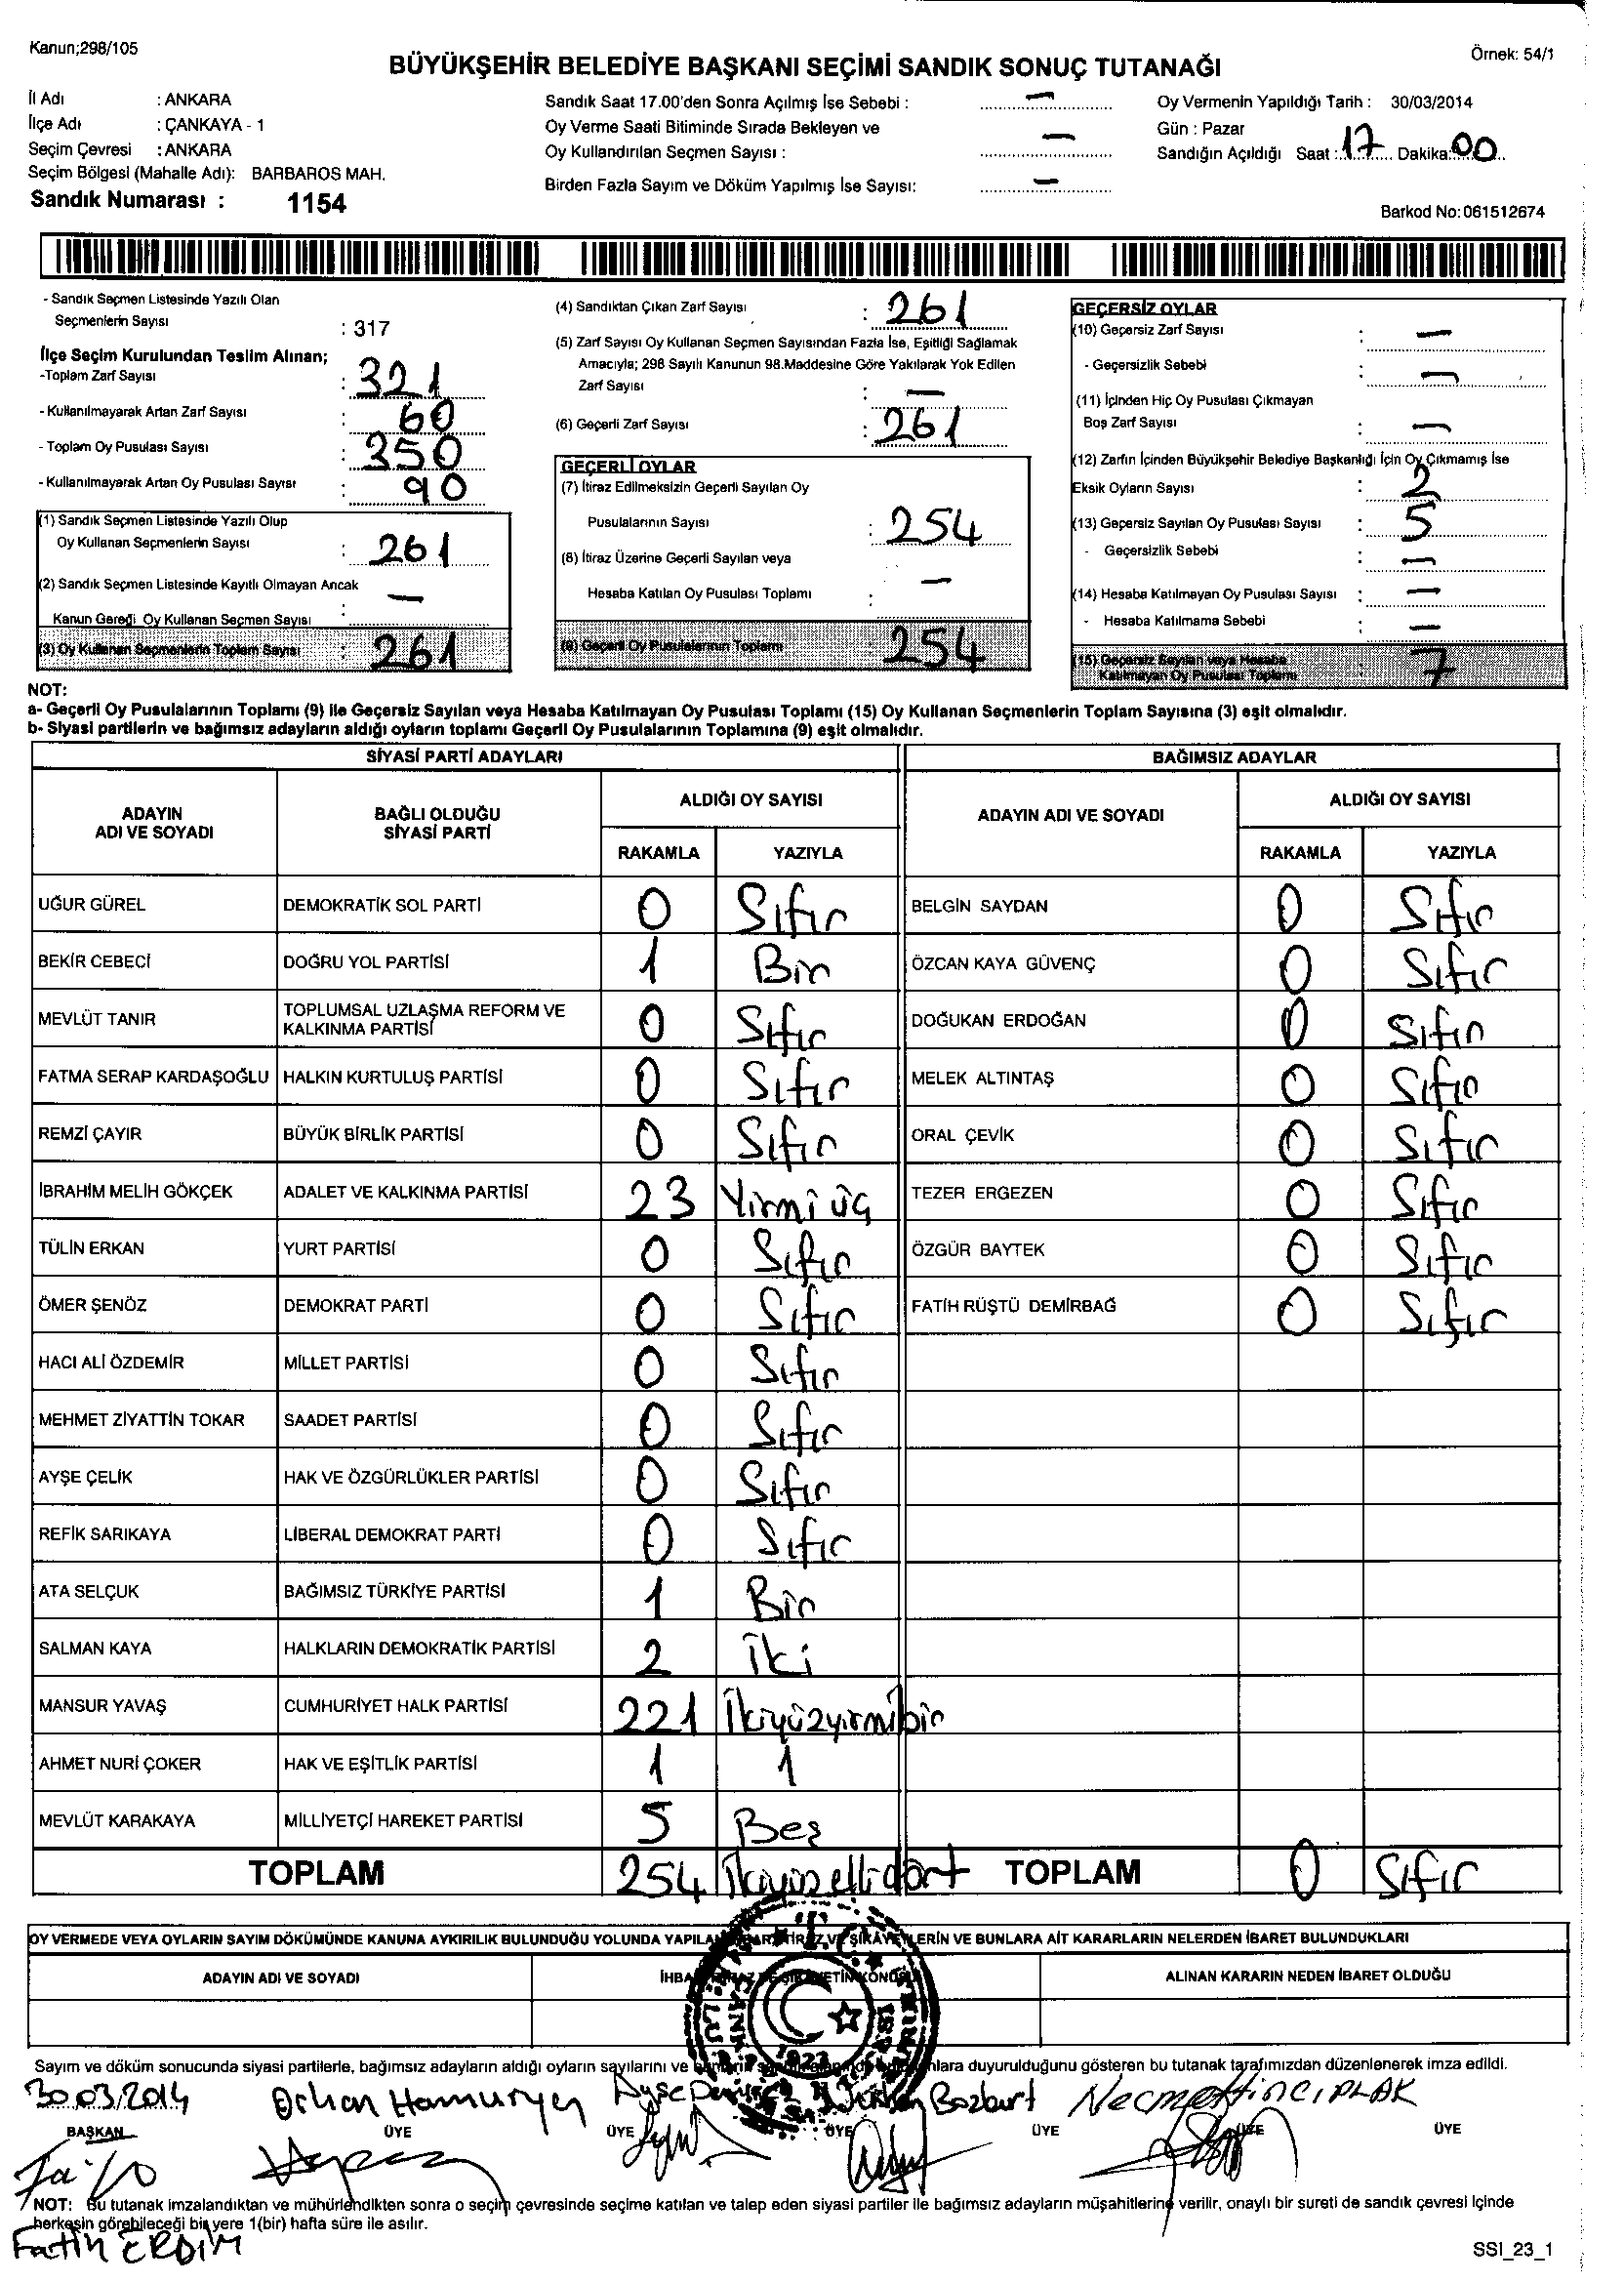 Kanun;298/105
Örnek: 54/1
BÜYÜKŞEHİR BELEDİYE BAŞKANI SEÇİMİ SANDIK SONUÇ TUTANAĞI
İl Adı : ANKARA
İlçe Adı : ÇANKAYA - 1
Seçim Çevresi : ANKARA
Seçim Bölgesi (Mahalle Adı): BARBAROS MAH.
Sandık Numarası : 1154
Sandık Saat 17.00'den Sonra Açılmış İse Sebebi : —
Oy Verme Saati Bitiminde Sırada Bekleyen ve
Oy Kullandırılan Seçmen Sayısı : —
Birden Fazla Sayım ve Döküm Yapılmış İse Sayısı: —
Oy Vermenin Yapıldığı Tarih : 30/03/2014
Gün : Pazar
Sandığın Açıldığı Saat : 17 Dakika: 00
Barkod No: 061512674
- Sandık Seçmen Listesinde Yazılı Olan
Seçmenlerin Sayısı : 317
İlçe Seçim Kurulundan Teslim Alınan;
-Toplam Zarf Sayısı : 321
- Kullanılmayarak Artan Zarf Sayısı : 60
- Toplam Oy Pusulası Sayısı : 350
- Kullanılmayarak Artan Oy Pusulası Sayısı : 90
(1) Sandık Seçmen Listesinde Yazılı Olup
Oy Kullanan Seçmenlerin Sayısı : 261
(2) Sandık Seçmen Listesinde Kayıtlı Olmayan Ancak
Kanun Gereği Oy Kullanan Seçmen Sayısı : —
(3) Oy Kullanan Seçmenlerin Toplam Sayısı : 261
(4) Sandıktan Çıkan Zarf Sayısı : 261
(5) Zarf Sayısı Oy Kullanan Seçmen Sayısından Fazla İse, Eşitliği Sağlamak
Amacıyla; 298 Sayılı Kanunun 98.Maddesine Göre Yakılarak Yok Edilen
Zarf Sayısı : —
(6) Geçerli Zarf Sayısı : 261
GEÇERLİ OYLAR
(7) İtiraz Edilmeksizin Geçerli Sayılan Oy
Pusulalarının Sayısı : 254
(8) İtiraz Üzerine Geçerli Sayılan veya
Hesaba Katılan Oy Pusulası Toplamı : —
(9) Geçerli Oy Pusulalarının Toplamı : 254
GEÇERSİZ OYLAR
(10) Geçersiz Zarf Sayısı : —
- Geçersizlik Sebebi : —
(11) İçinden Hiç Oy Pusulası Çıkmayan
Boş Zarf Sayısı : —
(12) Zarfın İçinden Büyükşehir Belediye Başkanlığı İçin Oy Çıkmamış İse
Eksik Oyların Sayısı : 2
(13) Geçersiz Sayılan Oy Pusulası Sayısı : 5
- Geçersizlik Sebebi : —
(14) Hesaba Katılmayan Oy Pusulası Sayısı : —
- Hesaba Katılmama Sebebi : —
(15) Geçersiz Sayılan veya Hesaba
Katılmayan Oy Pusulası Toplamı : 7
NOT:
a- Geçerli Oy Pusulalarının Toplamı (9) ile Geçersiz Sayılan veya Hesaba Katılmayan Oy Pusulası Toplamı (15) Oy Kullanan Seçmenlerin Toplam Sayısına (3) eşit olmalıdır.
b- Siyasi partilerin ve bağımsız adayların aldığı oyların toplamı Geçerli Oy Pusulalarının Toplamına (9) eşit olmalıdır.
SİYASİ PARTİ ADAYLARI
ADAYIN ADI VE SOYADI BAĞLI OLDUĞU SİYASİ PARTİ ALDIĞI OY SAYISI
RAKAMLA YAZIYLA
UĞUR GÜREL DEMOKRATİK SOL PARTİ 0 Sıfır
BEKİR CEBECİ DOĞRU YOL PARTİSİ 1 Bir
MEVLÜT TANIR TOPLUMSAL UZLAŞMA REFORM VE KALKINMA PARTİSİ 0 Sıfır
FATMA SERAP KARDAŞOĞLU HALKIN KURTULUŞ PARTİSİ 0 Sıfır
REMZİ ÇAYIR BÜYÜK BİRLİK PARTİSİ 0 Sıfır
İBRAHİM MELİH GÖKÇEK ADALET VE KALKINMA PARTİSİ 23 Yirmi üç
TÜLİN ERKAN YURT PARTİSİ 0 Sıfır
ÖMER ŞENÖZ DEMOKRAT PARTİ 0 Sıfır
HACI ALİ ÖZDEMİR MİLLET PARTİSİ 0 Sıfır
MEHMET ZİYATTİN TOKAR SAADET PARTİSİ 0 Sıfır
AYŞE ÇELİK HAK VE ÖZGÜRLÜKLER PARTİSİ 0 Sıfır
REFİK SARIKAYA LİBERAL DEMOKRAT PARTİ 0 Sıfır
ATA SELÇUK BAĞIMSIZ TÜRKİYE PARTİSİ 1 Bir
SALMAN KAYA HALKLARIN DEMOKRATİK PARTİSİ 2 İki
MANSUR YAVAŞ CUMHURİYET HALK PARTİSİ 221 İkiyüzyirmibir
AHMET NURİ ÇOKER HAK VE EŞİTLİK PARTİSİ 1 1
MEVLÜT KARAKAYA MİLLİYETÇİ HAREKET PARTİSİ 5 Beş
TOPLAM 254 İkiyüzellidört
BAĞIMSIZ ADAYLAR
ADAYIN ADI VE SOYADI ALDIĞI OY SAYISI
RAKAMLA YAZIYLA
BELGİN SAYDAN 0 Sıfır
ÖZCAN KAYA GÜVENÇ 0 Sıfır
DOĞUKAN ERDOĞAN 0 Sıfır
MELEK ALTINTAŞ 0 Sıfır
ORAL ÇEVİK 0 Sıfır
TEZER ERGEZEN 0 Sıfır
ÖZGÜR BAYTEK 0 Sıfır
FATİH RÜŞTÜ DEMİRBAĞ 0 Sıfır
TOPLAM 0 Sıfır
OY VERMEDE VEYA OYLARIN SAYIM DÖKÜMÜNDE KANUNA AYKIRILIK BULUNDUĞU YOLUNDA YAPILAN İHBAR İTİRAZ VE ŞİKAYETLERİN VE BUNLARA AİT KARARLARIN NELERDEN İBARET BULUNDUKLARI
ADAYIN ADI VE SOYADI İHBAR İTİRAZ VE ŞİKAYETİN KONUSU ALINAN KARARIN NEDEN İBARET OLDUĞU
Sayım ve döküm sonucunda siyasi partilerle, bağımsız adayların aldığı oyların sayılarını ve duyurulduğunu gösteren bu tutanak tarafımızdan düzenlenerek imza edildi.
30.03.2014 Orhan Hamuryen Ayşe Bozkurt Necmettin CIPLAK
BAŞKAN ÜYE ÜYE ÜYE ÜYE ÜYE ÜYE
NOT: Bu tutanak imzalandıktan ve mühürlendikten sonra o seçim çevresinde seçime katılan ve talep eden siyasi partiler ile bağımsız adayların müşahitlerine verilir, onaylı bir sureti de sandık çevresi içinde
herkesin görebileceği bir yere 1(bir) hafta süre ile asılır.
Fatih ERDİM
SSI_23_1